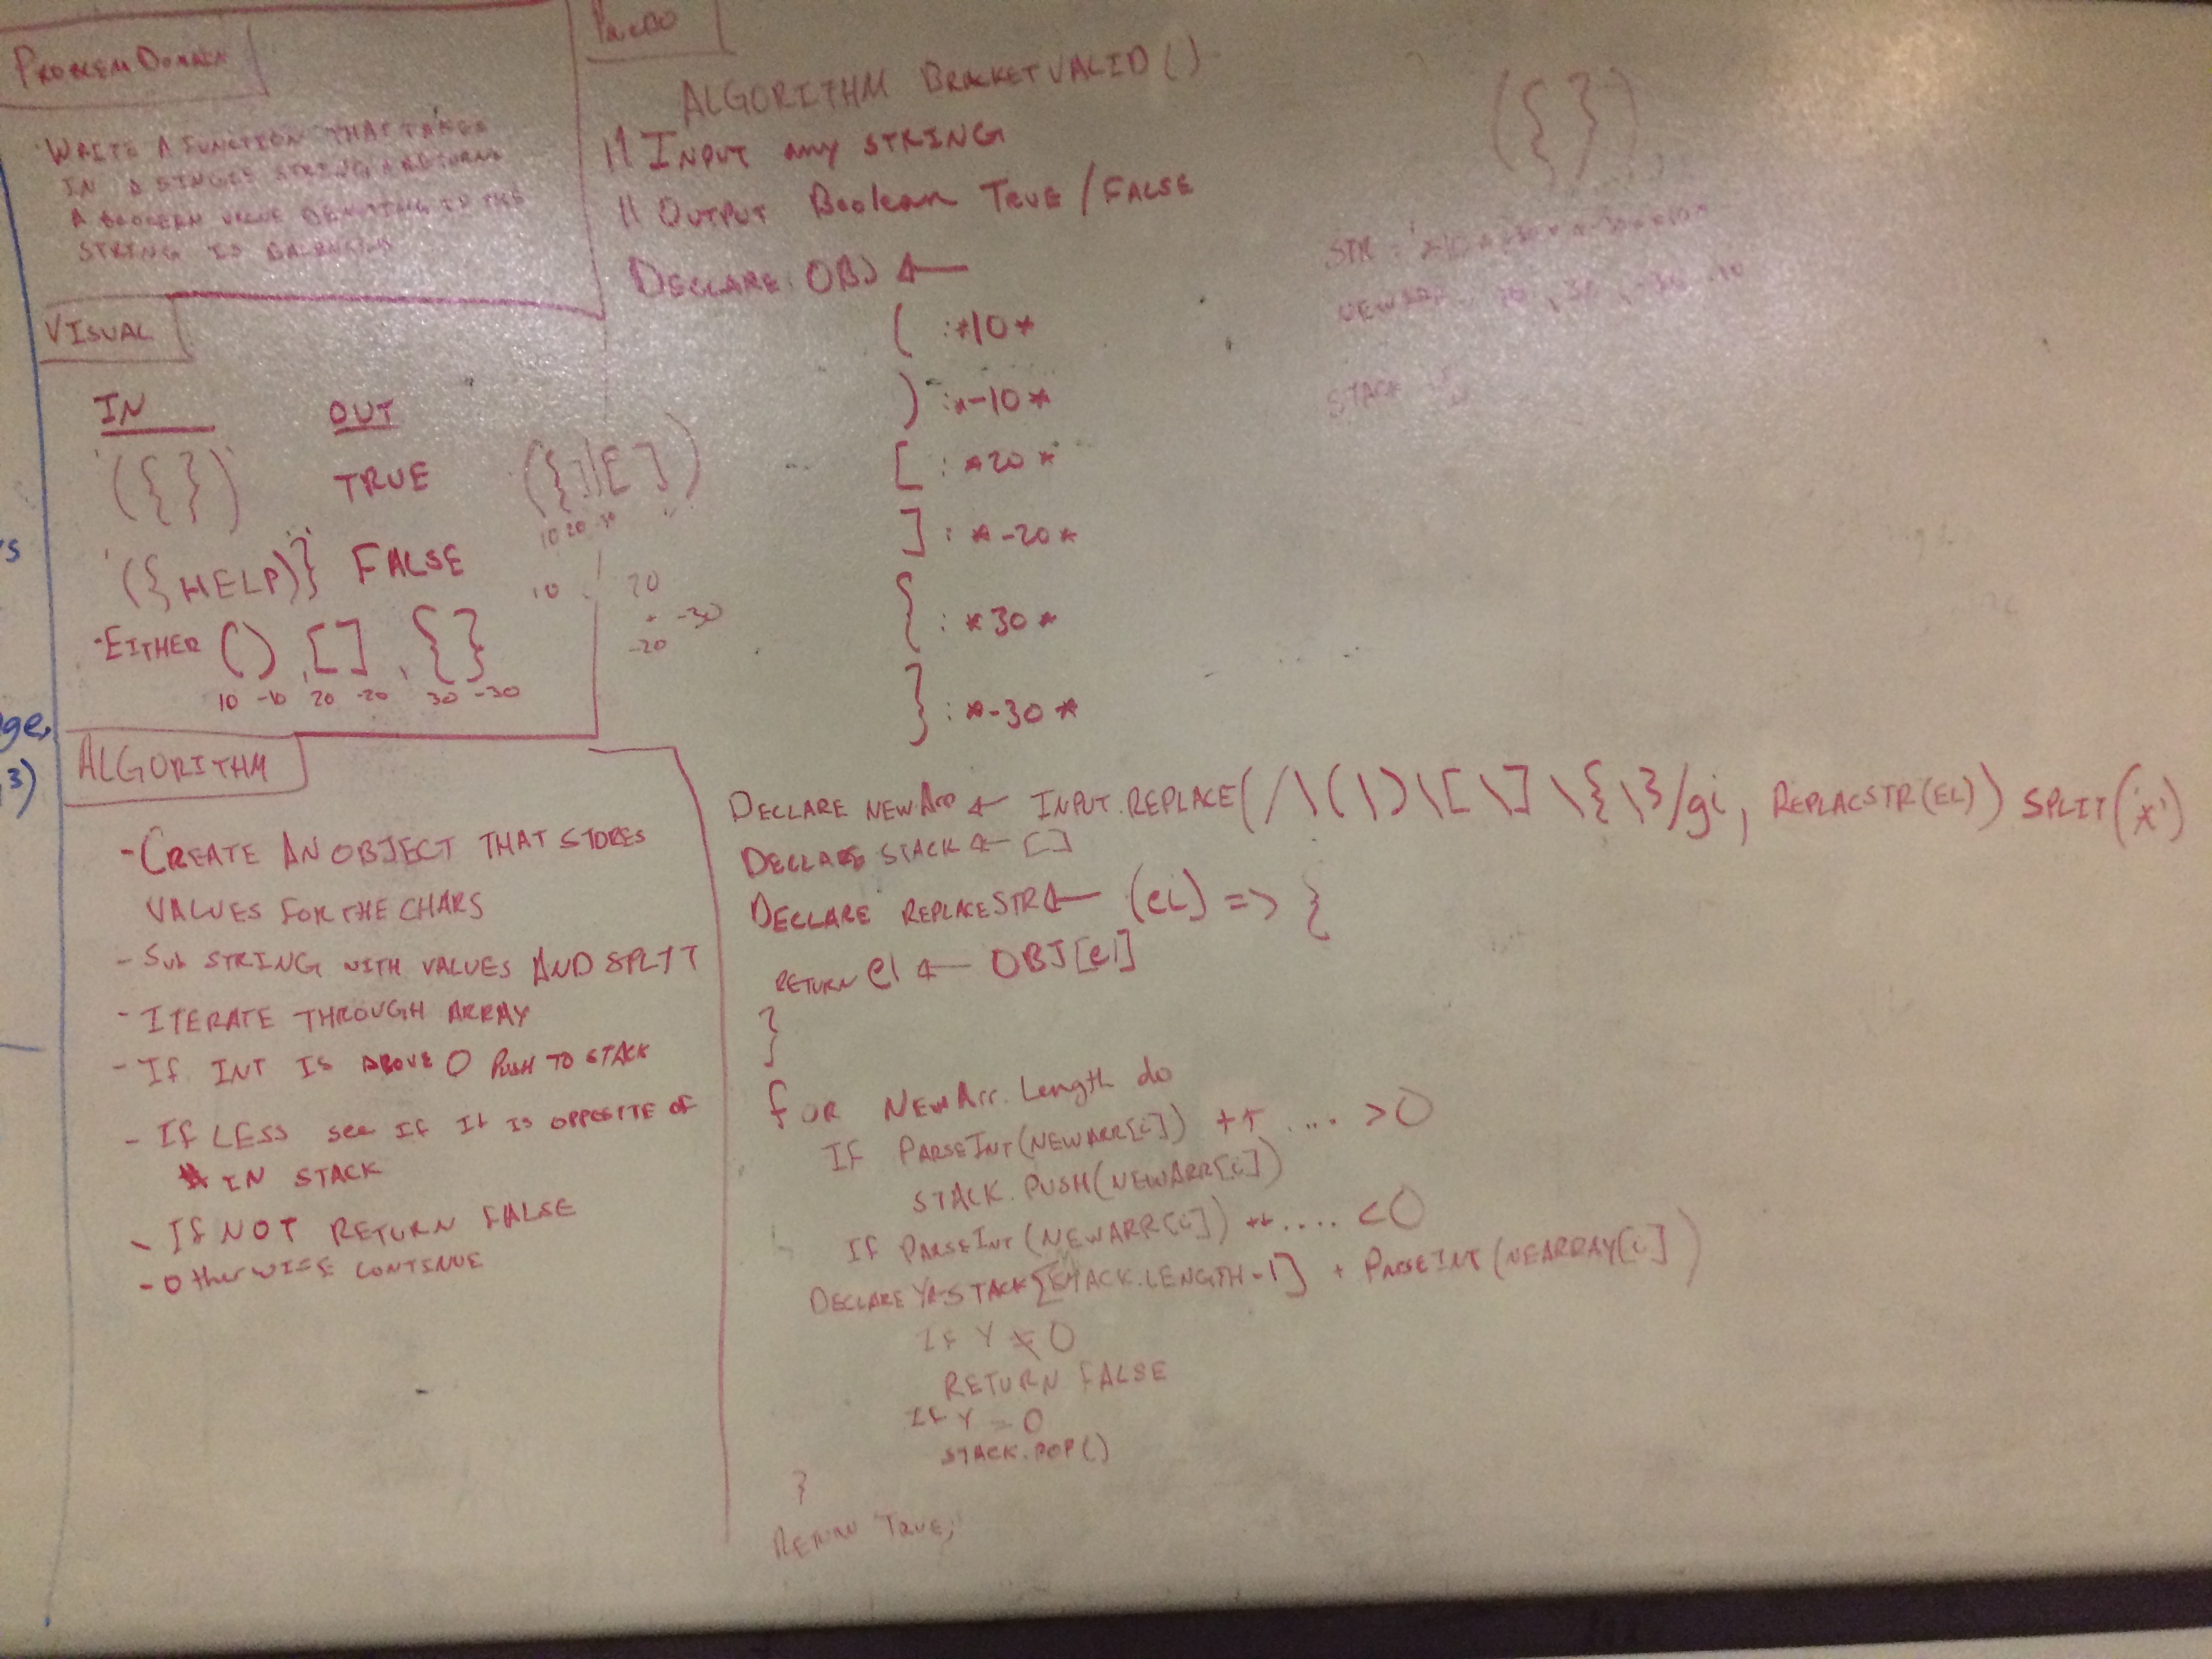 PROBLEM DOMAIN
WRITE A FUNCTION THAT TAKES
IN A SINGLE STRING & RETURNS
A BOOLEAN VALUE DENOTING IF THE
STRING IS
VISUAL
IN OUT
'({})' TRUE
'({HELP)}' FALSE
-EITHER (), [], {}
10 -10 20 -20 30 -30
10 20 30
10 20
-30
-20
ALGORITHM
-CREATE AN OBJECT THAT STORES
VALUES FOR THE CHARS
-SUB STRING WITH VALUES AND SPLIT
-ITERATE THROUGH ARRAY
-IF INT IS ABOVE 0 PUSH TO STACK
-IF LESS see IF It IS OPPOSITE OF
# IN STACK
-IF NOT RETURN FALSE
-OtherWISE CONTINUE
ALGORITHM BRACKETVALID()
// INPUT any STRING
// OUTPUT Boolean TRUE/FALSE
DECLARE OBJ ←
( : *10*
) : *-10*
[ : *20*
] : *-20*
{ : *30*
} : *-30*
DECLARE NEWArr ← INPUT.REPLACE(/\(\)\[\]\{\}/gi, REPLACSTR(EL)) SPLIT('*')
DECLARE STACK ← []
DECLARE REPLACESTR ← (eL) => {
RETURN el ← OBJ[el]
}
FOR NEWArr.Length do
IF PARSEINT(NEWARR[i]) ++ .... >0
STACK.PUSH(NEWARR[i])
IF PARSEINT(NEWARR[i]) ++ .... <0
DECLARE Y←STACK[STACK.LENGTH-1] + PARSEINT(NEARRAY[i])
IF Y ≠ 0
RETURN FALSE
IF Y = 0
STACK.POP()
}
RETURN TRUE;
({})
STR :
NEWARR
STACK
s
ge,
3)